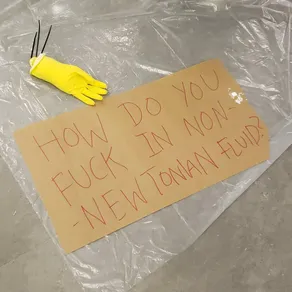 HOW DO YOU
FUCK IN NON-
-NEWTONIAN FLUID?